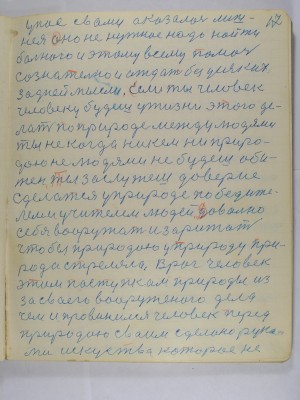 17
упое с вами оказалас лиш-
нея оно не нужное надо найти
болного и этому всему помоч
сознателно и отдат без всяких
задней мысли, Если ты человек
человеку будеш у жизни этого де-
лат по природе между людями
ты не когда никем ни приро-
дою не людями не будеш оби-
жен, ты заслужеш доверие
сделатся у природе победите-
лем и учителем людей, доволно
себя вооружат и зарежат
чтобы природою у природу при-
рода стреляла, Враг человек
этим поступкам природы из
за своего вооруженого дела
чем и провинился человек перед
природою своим сделано рука-
ми искуства которое не